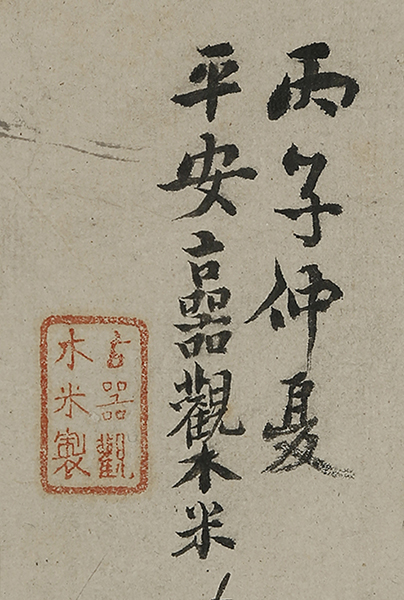 丙子仲夏
平安古器觀木米
古器觀
木米製